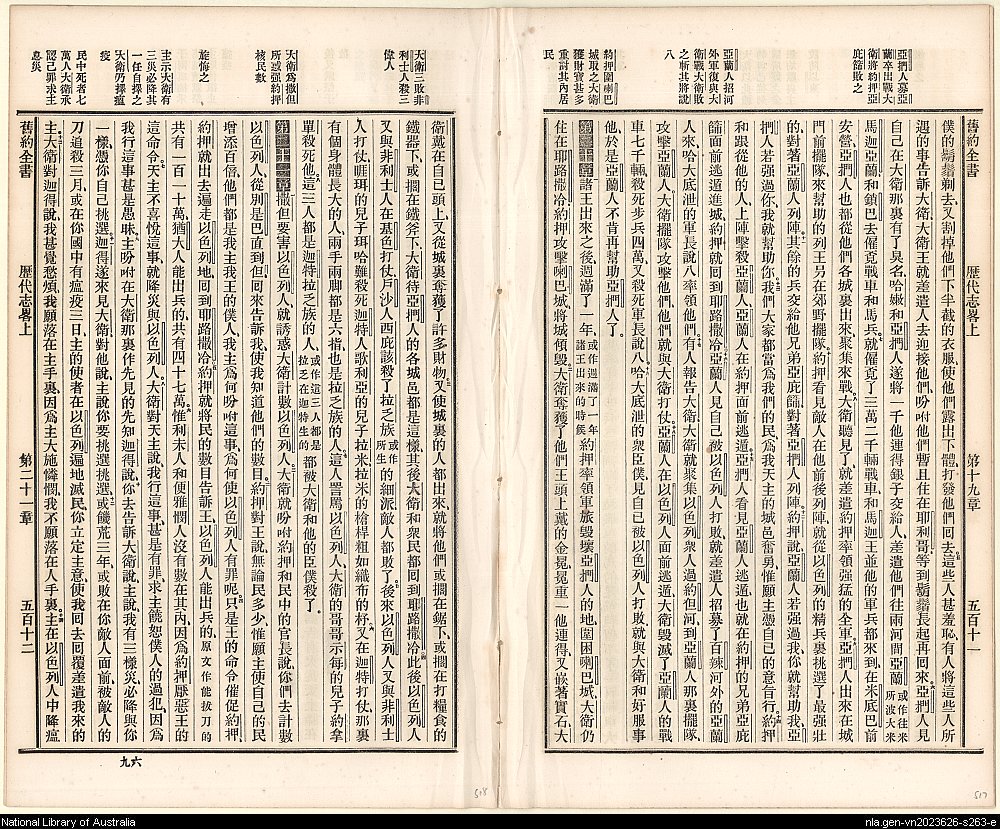 亞捫人募亞
蘭卒出戰大
衛將約押亞
庇篩敗之
亞蘭人招河
外軍復與大
衛戰大衛敗
之斬其將說
八
約押圍喇巴
城取之大衛
獲財寶甚多
重討其內居
民
舊約全書 歷代志畧上 第十九章 五百十一
僕的鬍鬚剃去、又割掉他們下半截的衣服、使他們露出下體、打發他們回去、這些人甚羞恥、有人將這些人所
遇的事告訴大衛、大衛王就差遣人去迎接他們、吩咐他們暫且住在耶利哥、等到鬍鬚長起再回來、亞捫人見
自己在大衛那裏有了臭名、哈嫩和亞捫人遂將一千他連得銀子交給人、差遣他們往兩河間亞蘭或作往米所波大米
馬迦亞蘭和鎖巴去僱覓戰車和馬兵、就僱覓了三萬二千輛戰車、和馬迦王並他的軍兵、都來到在米底巴前
安營、亞捫人也都從他們各城裏出來聚集來戰、大衛聽見了、就差遣約押率領强猛的全軍、亞捫人出來在城
門前擺隊、來幫助的列王另在郊野擺隊、約押看見敵人在他前後列陣、就從以色列的精兵裏挑選了最强壯
的對著亞蘭人列陣、其餘的兵交給他兄弟亞庇篩對著亞捫人列陣、約押說、亞蘭人若强過我、你就幫助我、亞
捫人若强過你、我就幫助你、我們大家都當爲我們的民、爲我天主的城邑奮勇、惟願主憑自己的意旨行、約押
和跟從他的人上陣擊殺亞蘭人、亞蘭人在約押面前逃遁、亞捫人看見亞蘭人逃遁、也就在約押的兄弟亞庇
篩面前逃遁進城、約押就回到耶路撒冷、亞蘭人見自己被以色列人打敗、就差遣人招募了百辣河外的亞蘭
人來、哈大底泄的軍長說八率領他們、有人報告大衛、大衛就聚集以色列衆人過約但河、到亞蘭人那裏擺隊、
攻擊亞蘭人、大衛擺隊攻擊他們、他們就與大衛打仗、亞蘭人在以色列人面前逃遁、大衛毀滅了亞蘭人的戰
車七千輛、殺死步兵四萬、又殺死軍長說八、哈大底泄的衆臣僕見自己被以色列人打敗、就與大衛和好服事
他、於是亞蘭人不肯再幫助亞捫人了、
第二十章 諸王出來之後週滿了一年、或作週滿了一年諸王出來的時候約押率領軍旅毀壞亞捫人的地、圍困喇巴城、大衛仍
住在耶路撒冷、約押攻擊喇巴城、將城傾毀、大衛奪獲了他們王頭上戴的金冕、冕重一他連得、又嵌著寶石、大
大衛三敗非
利士人殺三
偉人
大衛爲撒但
所惑强約押
核民數
旋悔之
主示大衛有
三災必降其
一任自擇之
大衛乃擇瘟
疫
民中死者七
萬人大衛承
認己罪求主
息災
衛戴在自己頭上、又從城裏奪獲了許多財物、又使城裏的人都出來、就將他們或擱在鋸下、或擱在打糧食的
鐵器下、或擱在鐵斧下、大衛待亞捫人的各城邑都是這樣、其後大衛和衆民都回到耶路撒冷、此後以色列人
又與非利士人在基色打仗、戶沙人西庇該殺了拉乏族或作所生的細派、敵人都敗了、後來以色列人又與非利士
人打仗、睚珥的兒子珥哈難殺死迦特人歌利亞的兒子拉米、拉米的槍桿粗如織布的杼、又在迦特打仗、那裏
有個身體長大的人、兩手兩脚都是六指、也是拉乏族的人、這人詈罵以色列人、大衛的哥哥示每的兒子約拿
單殺死他、這三人都是迦特拉乏族的人、或作這三人都是拉乏在迦特生的都被大衛和他的臣僕殺了、
第二十一章 撒但要害以色列人、就誘惑大衛計數以色列人、大衛就吩咐約押和民中的官長說、你們去計數
以色列人、從別是巴直到但、回來告訴我、使我知道他們的數目、約押對王說、無論民多少、惟願主使自己的民
增添百倍、他們都是我主我王的僕人、我主爲何吩咐這事、爲何使以色列人有罪呢、只是王的命令催促約押、
約押就出去遍走以色列地、回到耶路撒冷、約押就將民的數目告訴王、以色列人能出兵的、原文作能拔刀的
共有一百一十萬、猶大人能出兵的、共有四十七萬、惟利未人和便雅憫人沒有數在其內、因爲約押厭惡王的
這命令、天主不喜悅這事、就降災與以色列人、大衛對天主說、我行這事甚是有罪、求主饒恕僕人的過犯、因爲
我行這事甚是愚昧、主吩咐在大衛那裏作先見的先知迦得說、你去告訴大衛說、主說、我有三樣災必降與你
一樣、憑你自己挑選、迦得遂來見大衛對他說、主說你要挑選挑選、或饑荒三年、或敗在你敵人面前被敵人的
刀追殺三月、或在你國中有瘟疫三日、主的使者在以色列遍地滅民、你立定主意、使我回去回覆差遣我來的
主、大衛對迦得說、我甚覺愁煩、我願落在主手裏、因爲主大施憐憫、我不願落在人手裏、主在以色列人中降瘟
舊約全書 歷代志畧上 第二十一章 五百十二
六九
518
517
National Library of Australia
nla.gen-vn2023626-s263-e